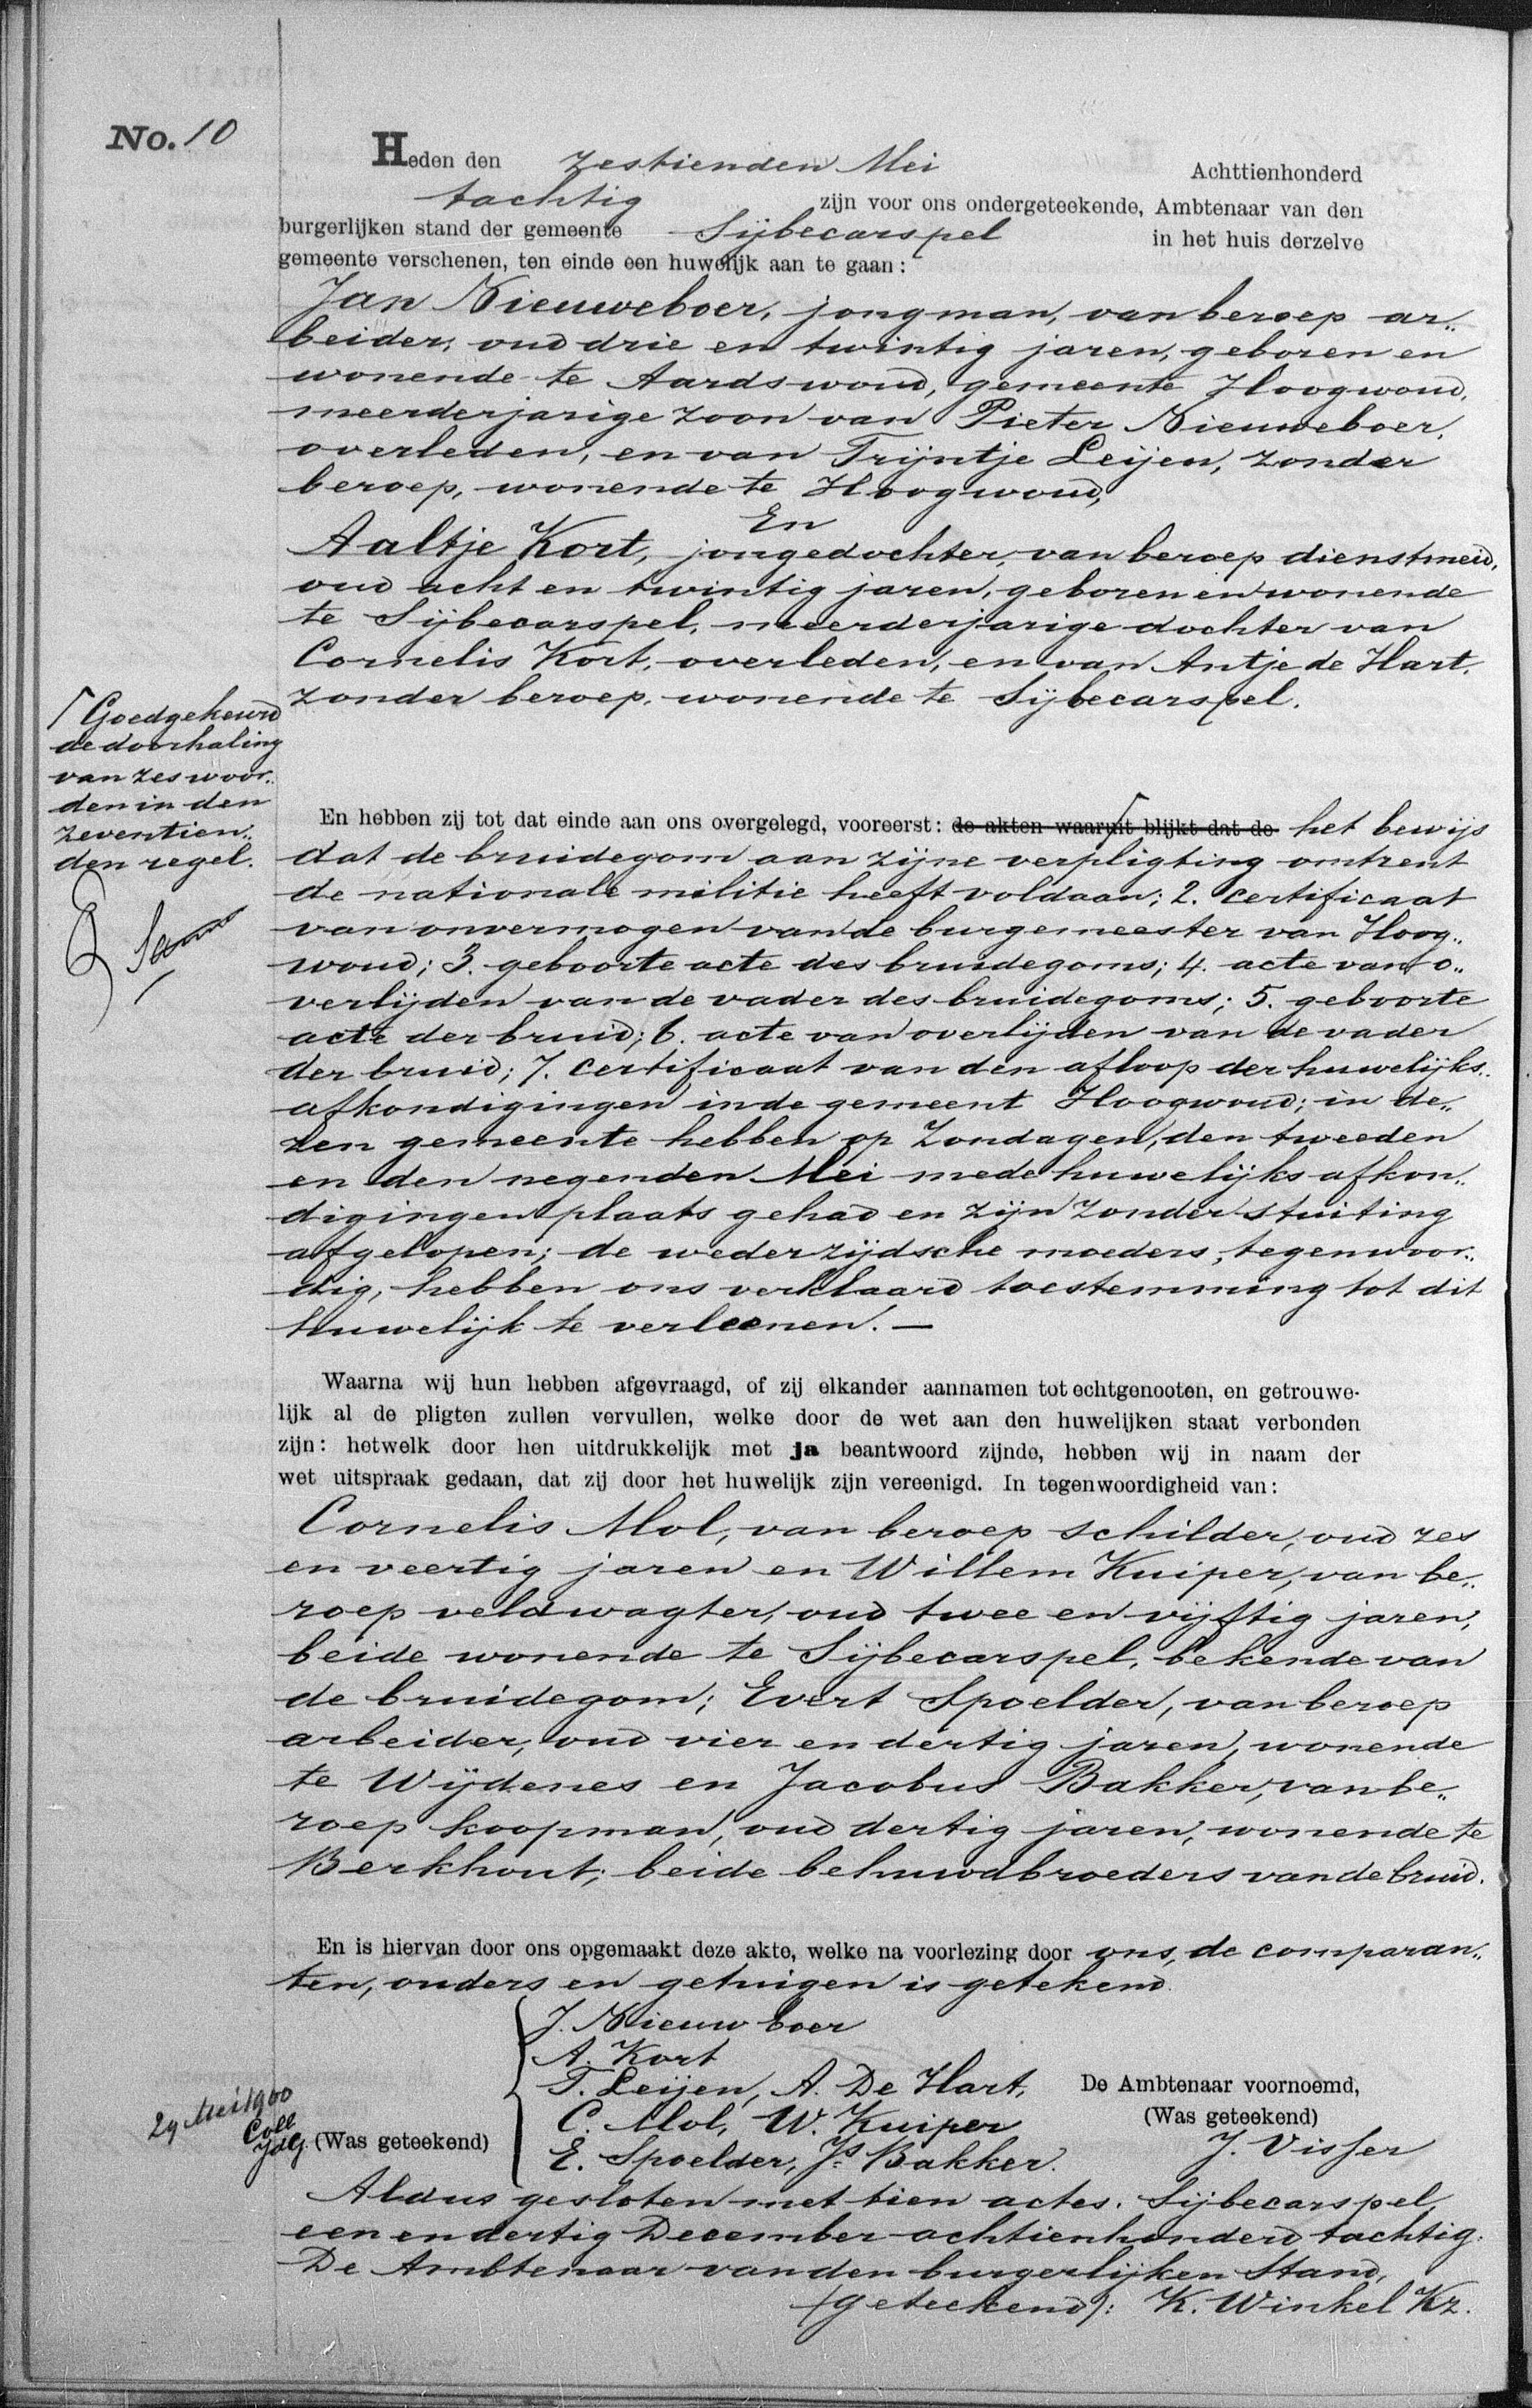 No. 10
Heden den zestienden Mei Achttienhonderd
tachtig zijn voor ons ondergeteekende, Ambtenaar van den
burgerlijken stand der gemeente Sijbecarspel in het huis derzelve
gemeente verschenen, ten einde een huwelijk aan te gaan:
Jan Nieuweboer, jongman, van beroep ar„
beider, oud drie en twintig jaren, geboren en
wonende te Aardswoud, gemeente Hoogwoud,
meerderjarige zoon van Pieter Nieuweboer,
overleden, en van Trijntje Leijen, zonder
beroep, wonende te Hoogwoud,
En
Aaltje Kort, jongedochter, van beroep dienstmeid,
oud acht en twintig jaren, geboren en wonende
te Sijbecarspel, meerderjarige dochter van
Cornelis Kort, overleden, en van Antje de Hart,
zonder beroep, wonende te Sijbecarspel.
Goedgekeurd
de doorhaling
van zes woor„
den in den
zeventien„
den regel.
En hebben zij tot dat einde aan ons overgelegd, vooreerst: de akten waaruit blijkt dat de het bewijs
dat de bruidegom aan zijne verpligting omtrent
de nationale militie heeft voldaan; 2. certificaat
van onvermogen van de burgemeester van Hoog„
woud; 3. geboorte acte des bruidegoms; 4. acte van o„
verlijden van de vader des bruidegoms; 5. geboorte
acte der bruid; 6. acte van overlijden van de vader
der bruid; 7. certificaat van den afloop der huwelijks„
afkondigingen in de gemeent Hoogwoud; in de„
zen gemeente hebben op Zondagen, den tweeden
en den negenden Mei mede huwelijks afkon„
digingen plaats gehad en zijn zonder stuiting
afgelopen; de wederzijdsche moeders, tegenwoor„
dig, hebben ons verklaard toestemming tot dit
huwelijk te verleenen. —
Waarna wij hun hebben afgevraagd, of zij elkander aannamen tot echtgenooten, en getrouwe-
lijk al de pligten zullen vervullen, welke door de wet aan den huwelijken staat verbonden
zijn: hetwelk door hen uitdrukkelijk met ja beantwoord zijnde, hebben wij in naam der
wet uitspraak gedaan, dat zij door het huwelijk zijn vereenigd. In tegenwoordigheid van:
Cornelis Mol, van beroep schilder, oud zes
en veertig jaren en Willem Kuiper, van be„
roep veldwagter, oud twee en vijftig jaren,
beide wonende te Sijbecarspel, bekende van
de bruidegom; Evert Spoelder, van beroep
arbeider, oud vier en dertig jaren, wonende
te Wijdenes en Jacobus Bakker, van be„
roep koopman, oud dertig jaren, wonende te
Berkhout; beide behuwdbroeders van de bruid.
En is hiervan door ons opgemaakt deze akte, welke na voorlezing door ons, de comparan„
ten, ouders en getuigen is getekend.
J. Nieuwboer
A. Kort
T. Leijen, A. De Hart, De Ambtenaar voornoemd,
C. Mol, W. Kuiper (Was geteekend)
29 Mei 1900
Coll
JdG. (Was geteekend) E. Spoelder, Js Bakker. J. Visser
Aldus gesloten met tien actes. Sijbecarspel,
een en dertig December achtienhonderd tachtig.
De Ambtenaar van den burgerlijken Stand,
(geteekend): K. Winkel Kz.